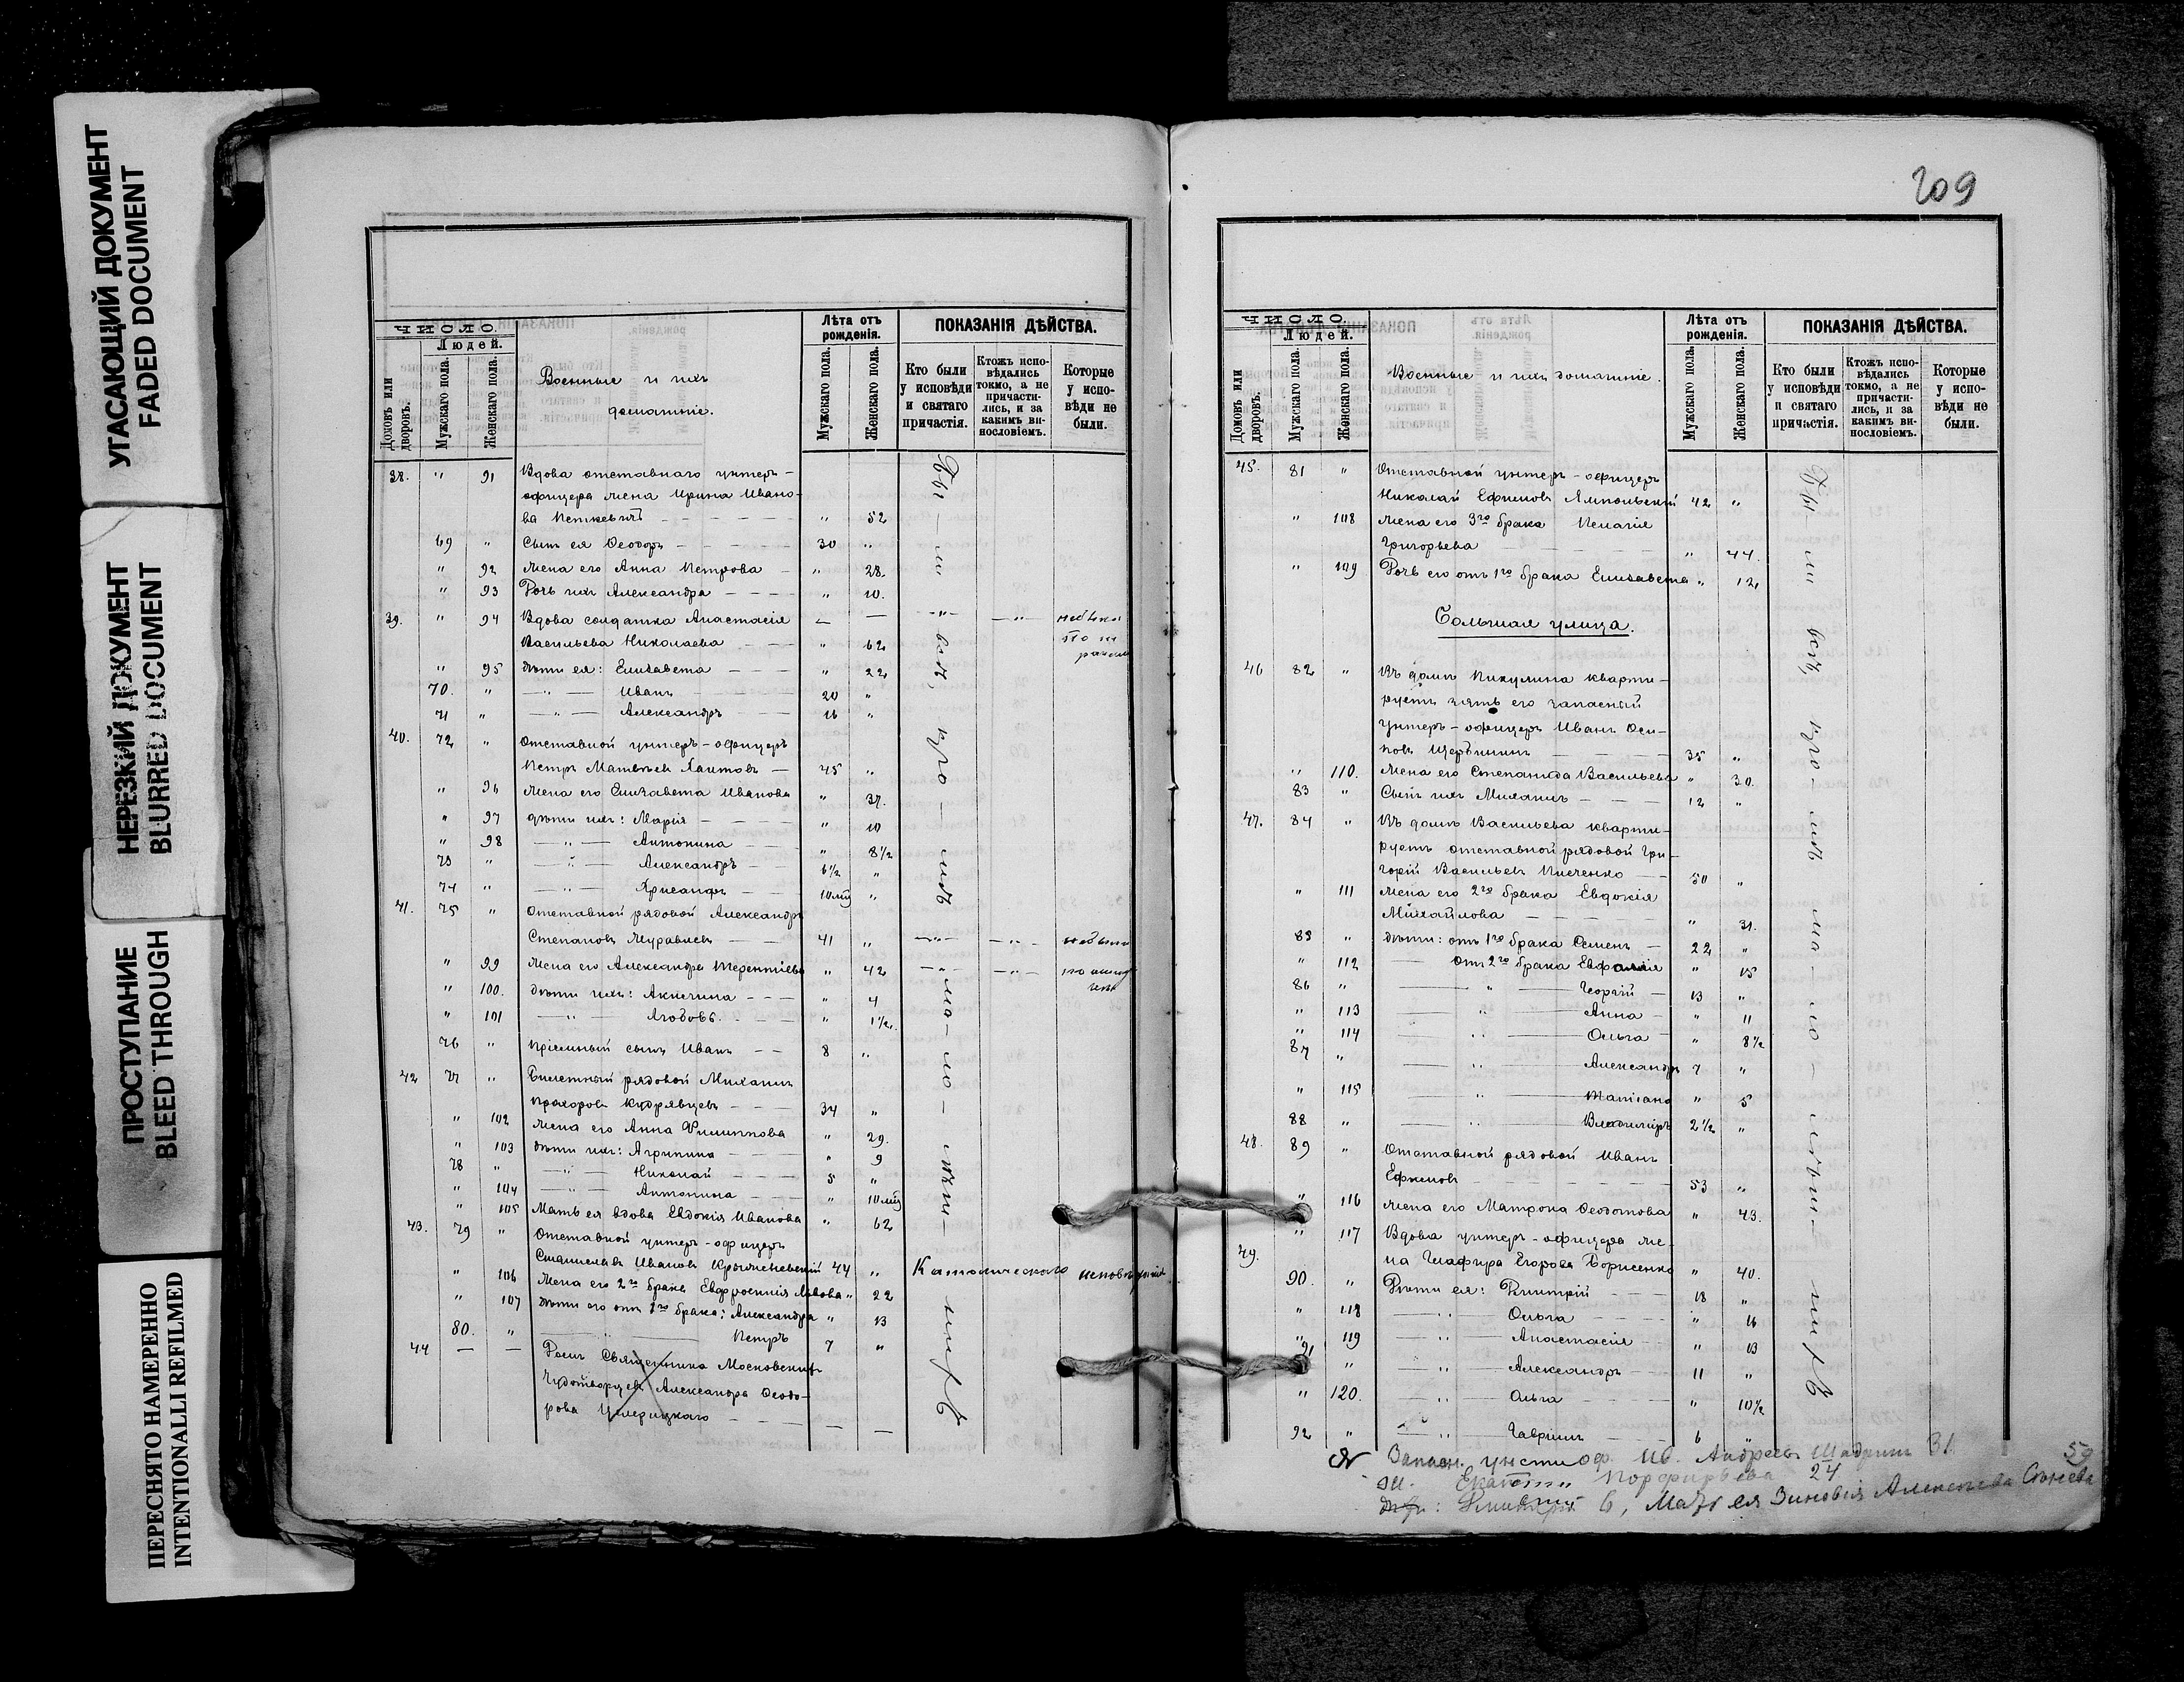 УГАСАЮЩИЙ ДОКУМЕНТ
FADED DOCUMENT
НЕРЕЗКИЙ ДОКУМЕНТ
BLURRED DOCUMENT
ПРОСТУПАНИЕ
BLEED THROUGH
ПЕРЕСНЯТО НАМЕРЕННО
INTENTIONALLI REFILMED
ЧИСЛО.
Людей.
Домовъ или дворовъ.
Мужскаго пола.
Женскаго пола.
Военные и ихъ
домашніе.
Лѣта отъ
рожденія.
Мужскаго пола.
Женскаго пола.
ПОКАЗАНІЯ ДѢЙСТВА.
Кто были
у исповѣди
и святаго
причастія.
Ктожъ испо-
вѣдались
токмо, а не
причасти-
лись, и за
какимъ ви-
нословіемъ.
Которые
у испо-
вѣди не
были.
38. " 91 Вдова отставнаго унтеръ-
офицера жена Ирина Ивано-
ва Петкевичъ " 52
69 " Сынъ ея Ѳеодоръ 30 "
" 92 Жена его Анна Петрова " 28.
" 93 Дочь ихъ Александра " 10.
39. " 94 Вдова солдатка Анастасія
Васильева Николаева " 62
" 95 Дѣти ея: Елизавета " 22
70. " Иванъ 20 "
71 " Александръ 16 "
40. 72 " Отставной унтеръ-офицеръ
Петръ Матвѣевъ 45 "
" 96 Жена его Елизавета Иванова " 37.
" 97 Дѣти ихъ: Марія " 10
" 98 Антонина " 8½
73 " Александръ 6½ "
74 " Хрисанфъ 10 мц "
41. 75 " Отставной рядовой Александръ
Степановъ Муравлевъ 41 "
" 99 Жена его Александра Терентіева " 42
" 100. Дѣти ихъ: " 4
" 101 Любовь. " 1½.
76 " Пріемный сынъ Иванъ 8 "
42 77 " Билетный рядовой Михаилъ
Прохоровъ Кудрявцевъ 34 "
" 102 Жена его Анна Филиппова " 29.
" 103 Дѣти ихъ: Агрипина " 9
78 " Николай 5 "
" 104 Антонина " 10 мц
" 105 Мать ея вдова Евдокія Иванова " 62
43. 79 " Отставной унтеръ-офицеръ
Станиславъ Ивановъ 44 " Католическаго исповѣданія
" 106 Жена его 2го брака Евфросинія Львова " 22
" 107 Дѣти его отъ 1го брака: Александра " 13
80. " Петръ 7 "
44 — — Домъ Священника Московскихъ
Чудотворцевъ Александра Ѳеодо-
рова
209
ЧИСЛО.
Людей.
Домовъ или дворовъ.
Мужскаго пола.
Женскаго пола.
Военные и ихъ домашніе.
Лѣта отъ
рожденія.
Мужскаго пола.
Женскаго пола.
ПОКАЗАНІЯ ДѢЙСТВА.
Кто были
у исповѣди
и святаго
причастія.
Ктожъ испо-
вѣдались
токмо, а не
причасти-
лись, и за
какимъ ви-
нословіемъ.
Которые
у испо-
вѣди не
были.
45. 81 " Отставной унтеръ-офицеръ
Николай Ефимовъ Ямпольский 42 "
" 108 Жена его 3го брака Пелагія
Григорьева " 44.
" 109 Дочь его отъ 1го брака Елизавета " 12
Большая улица.
46 82 " Въ домѣ Никулина кварти-
руетъ зять его запасный
унтеръ-офицеръ Иванъ Оси-
повъ Щербининъ 35 "
" 110. Жена его Степанида Васильева " 30.
83 " Сынъ ихъ Михаилъ 12 "
47. 84 " Въ домѣ Васильева кварти-
руетъ отставной рядовой Гри-
горій Васильевъ 50 "
" 111 Жена его 2го брака Евдокія
Михайлова " 31.
85 " Дѣти: отъ 1го брака Семенъ 22 "
" 112 Отъ 2го брака " 15
86 " Георгій 13 "
" 113 Анна " 11
" 114 Ольга " 8½
87 " Александръ 7 "
" 115 Татіана " 5
88 " Владиміръ 2½ "
48. 89 " Отставной рядовой Иванъ
Ефимовъ 53 "
" 116 Жена его Матрона Ѳеодотова " 43.
49. " 117 Вдова унтеръ-офицера же-
на Глафира Егорова Борисенко " 40.
90. " Дѣти ея: Дмитрій 18 "
" 118 Ольга " 16
" 119 Анастасія " 13
91 " Александръ 11 "
" 120. Ольга " 10½
92 " Гавріилъ 6 "
Запасн. унт. оф. Ив. Андреевъ Шадринъ 31
Ж. Порфирьева 24
Дмитрій 6, Мать ея Зиновія Алексѣева 59